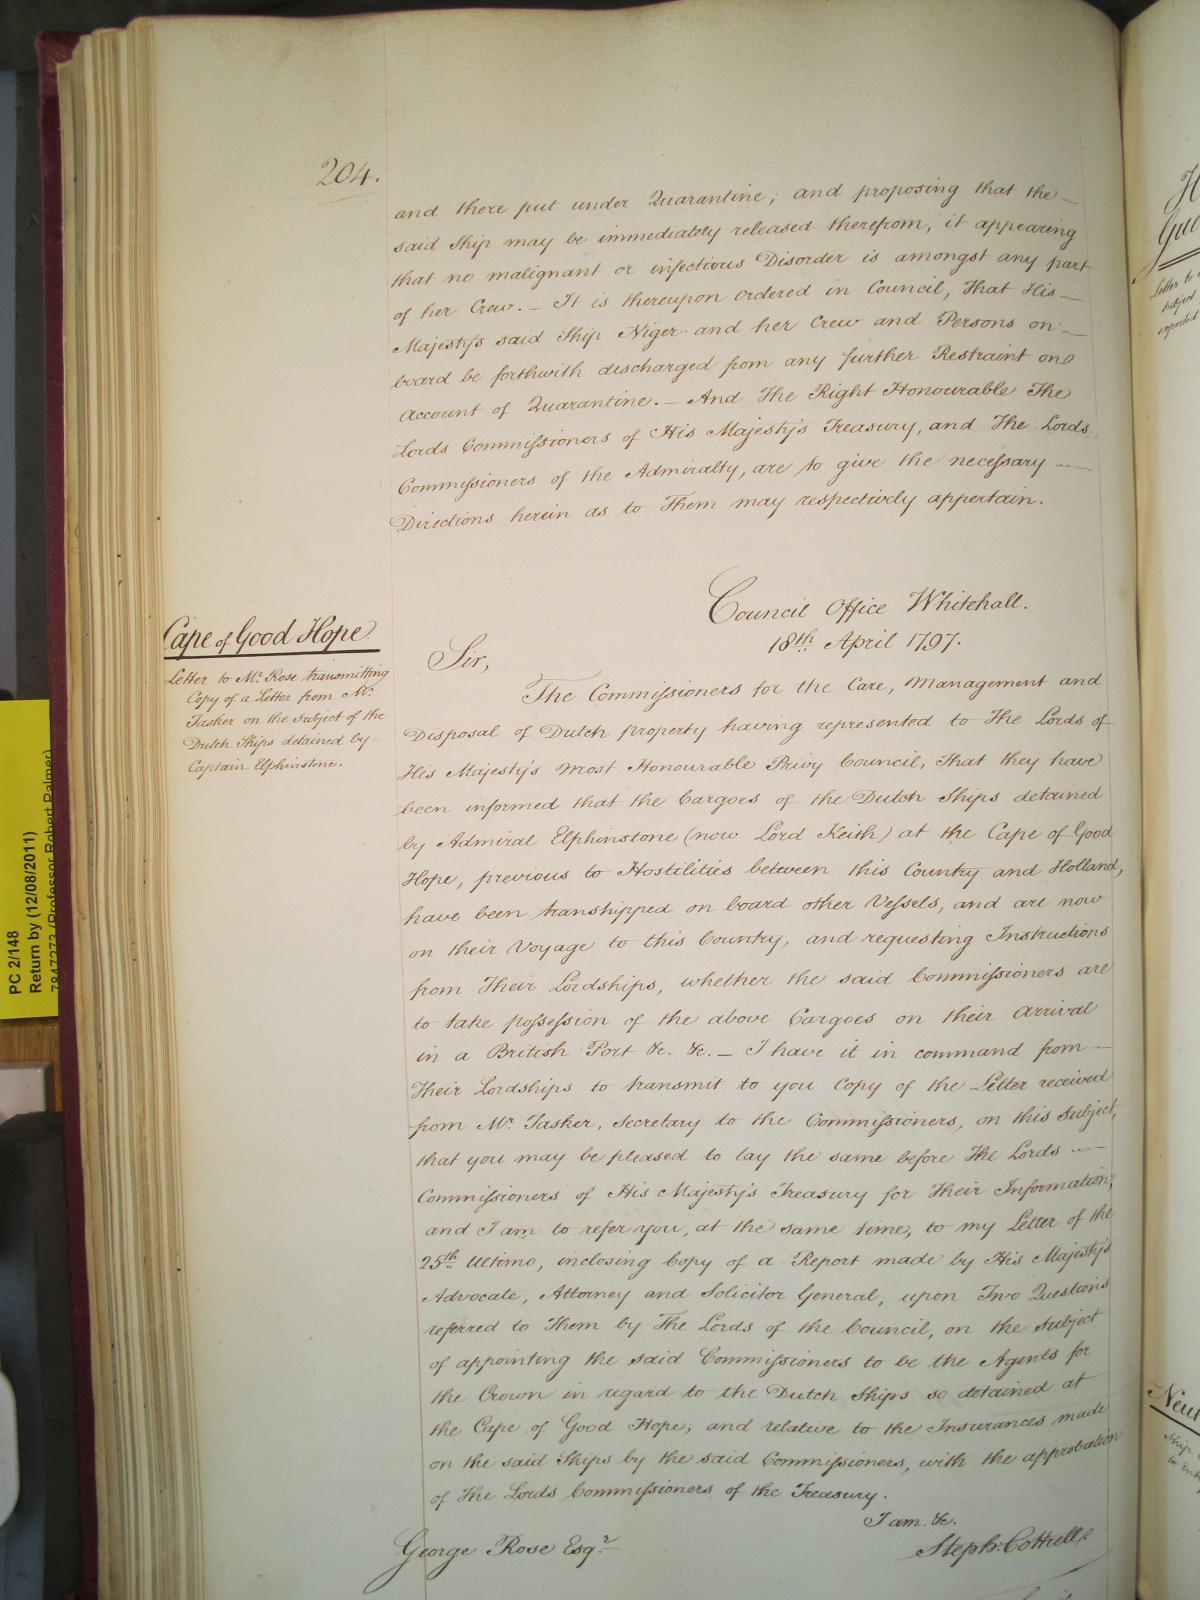 204.
and there put under Quarantine; and proposing that the
said Ship may be immediately released therefrom, it appearing
that no malignant or infectious Disorder is amongst any part
of her Crew. – It is thereupon ordered in Council, That His
Majesty's said Ship Niger and her Crew and Persons on
board be forthwith discharged from any further Restraint on
Account of Quarantine. – And The Right Honourable The
Lords Commissioners of His Majesty's Treasury, and The Lords
Commissioners of the Admiralty, are to give the necessary
Directions herein as to Them may respectively appertain.
Council Office Whitehall.
18th April 1797.
Cape of Good Hope.
Letter to Mr. Rose transmitting
Copy of a Letter from Mr.
Tasker on the subject of the
Dutch Ships detained by
Captain Elphinstone.
Sir,
The Commissioners for the Care, Management and
Disposal of Dutch property having represented to The Lords of
His Majesty's most Honourable Privy Council, That they have
been informed that the Cargoes of the Dutch Ships detained
by Admiral Elphinstone (now Lord Keith) at the Cape of Good
Hope, previous to Hostilities between this Country and Holland,
have been transhipped on board other Vessels, and are now
on their Voyage to this Country, and requesting Instructions
from Their Lordships, whether the said Commissioners are
to take possession of the above Cargoes on their arrival
in a British Port &c. &c. – I have it in command from
Their Lordships to transmit to you Copy of the Letter received
from Mr. Tasker, Secretary to the Commissioners, on this Subject,
that you may be pleased to lay the same before The Lords
Commissioners of His Majesty's Treasury for Their Information;
and I am to refer you, at the same time, to my Letter of the
25th Ultimo, inclosing Copy of a Report made by His Majesty's
Advocate, Attorney and Solicitor General, upon Two Questions
referred to Them by The Lords of the Council, on the Subject
of appointing the said Commissioners to be the Agents for
the Crown in regard to the Dutch Ships so detained at
the Cape of Good Hope; and relative to the Insurances made
on the said Ships by the said Commissioners, with the approbation
of The Lords Commissioners of the Treasury.
I am &c.
George Rose Esqr.
Steph: Cottrell
PC 2/148
Return by (12/08/2011)
7847272 (Professor Robert Palmer)
Letter to
subject
Neut
Ship